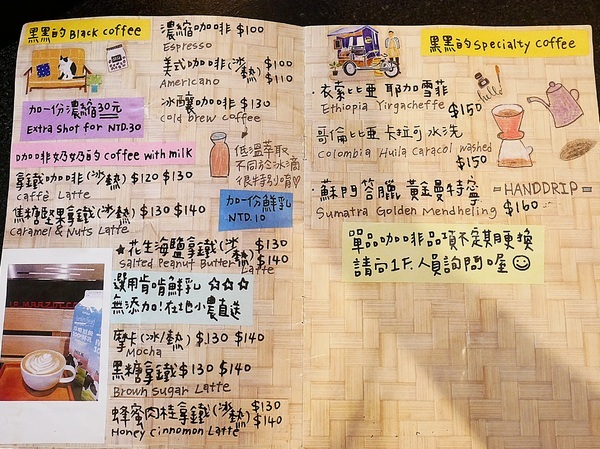 黑黑的Black coffee
加一份濃縮30元
Extra shot for NTD.30
咖啡奶奶的coffee with milk
拿鐵咖啡(冰/熱) $120 $130
Caffè Latte
焦糖堅果拿鐵(冰/熱) $130 $140
Caramel & Nuts Latte
濃縮咖啡 $100
Espresso
美式咖啡(冰/熱) $100 $110
Americano
冰釀咖啡 $130
cold brew coffee
低溫萃取
不同於冰滴
很特別唷
加一份鮮乳
NTD.10
★花生海鹽拿鐵(冰/熱) $130 $140
Salted Peanut Butter Latte
選用肯啃鮮乳 ☆☆☆
無添加!在地小農直送
摩卡(冰/熱) $130 $140
Mocha
黑糖拿鐵 $130 $140
Brown Sugar Latte
蜂蜜肉桂拿鐵(冰/熱) $130 $140
Honey cinnomon Latte
黑黑的Specialty coffee
·衣索比亞 耶加雪菲
Ethiopia Yirgacheffe $150
hello
·哥倫比亞 卡拉可 水洗
Colombia Huila Caracol washed
$150
·蘇門答臘 黃金曼特寧
Sumatra Golden Mendheling $160
-HANDDRIP-
單品咖啡品項不定期更換
請向1F.人員詢問喔